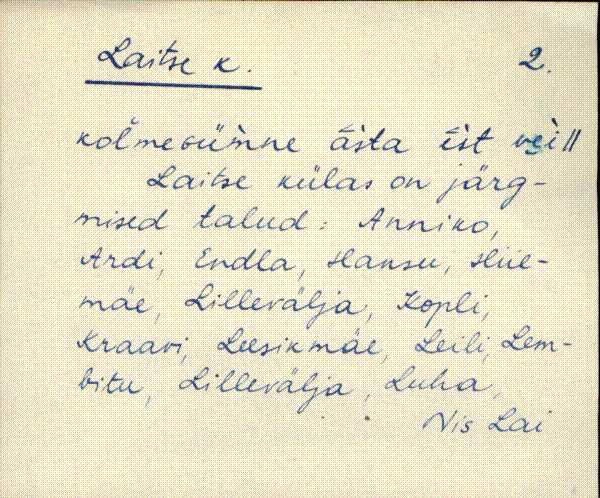 Laitse k. 2.
kolmeküm̀ne äs̀ta es̀t vei̭ǁ
Laitse külas on järg-
mised talud: Anniko,
Ardi, Endla, Hansu, Hiie-
mäe, Lillevälja, Kopli,
Kraavi, Leesikmäe, Leili, Lem-
bitu, Lillevälja, Luha,
Nis Lai